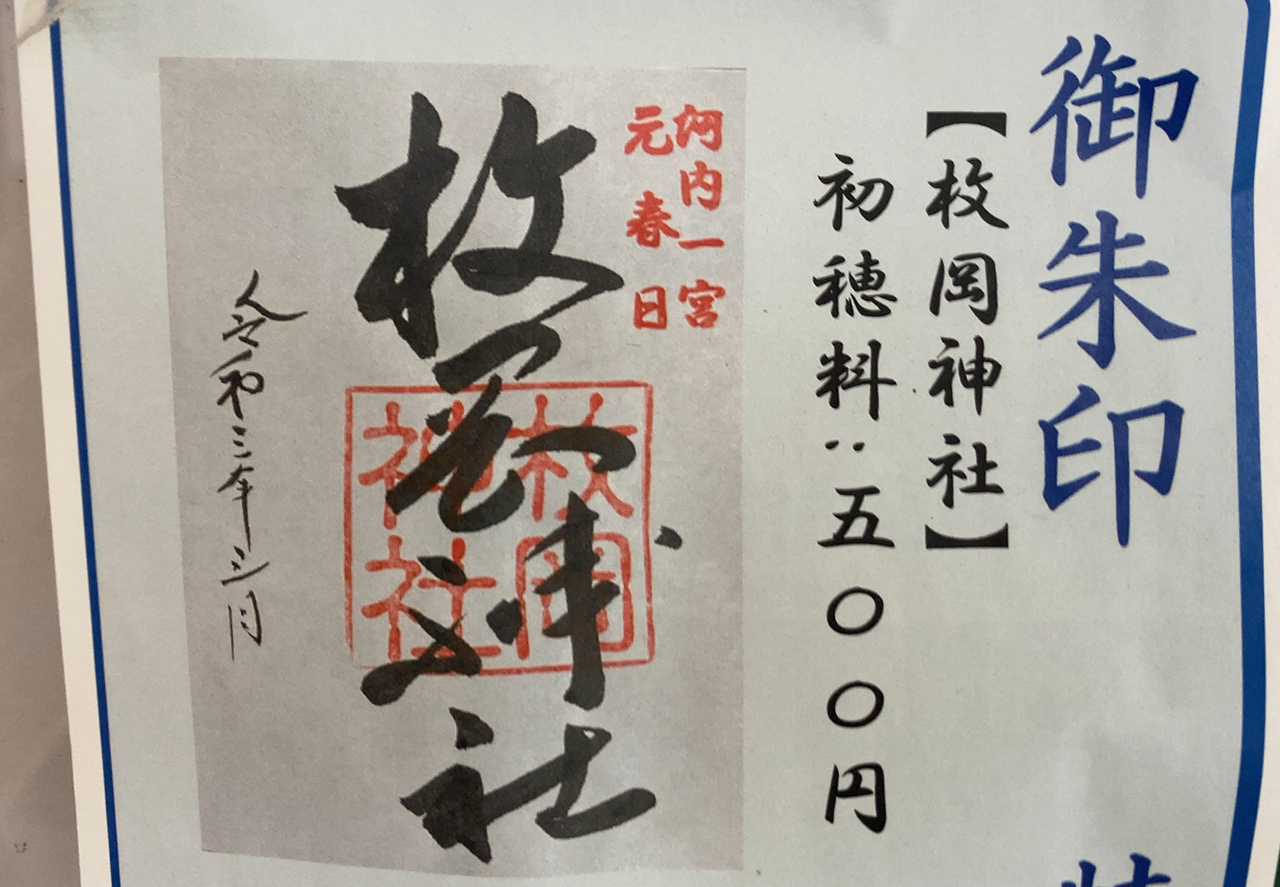 御朱印
【枚岡神社】
初穂料：五〇〇円
河内一宮
元春日
枚岡神社
枚岡
神社
令和三年三月